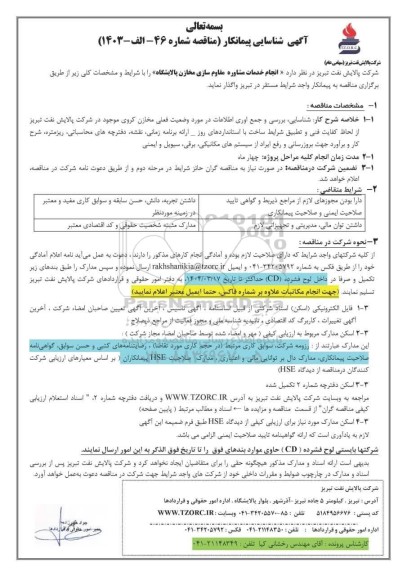 بسمه‌تعالی
آگهی شناسایی پیمانکار (مناقصه شماره ۴۶-الف-۱۴۰۳)
شرکت پالایش نفت تبریز (سهامی عام)
شرکت پالایش نفت تبریز در نظر دارد « انجام خدمات مشاوره مقاوم سازی مخازن پالایشگاه» را با شرایط و مشخصات کلی زیر از طریق
برگزاری مناقصه به پیمانکار واجد شرایط مستقر در تبریز واگذار نماید.
۱- مشخصات مناقصه :
۱-۱ خلاصه شرح کار: شناسایی، بررسی و جمع آوری اطلاعات در مورد وضعیت فعلی مخازن کروی موجود در شرکت پالایش نفت تبریز
از لحاظ کفایت فنی و تطبیق شرایط ساخت با استانداردهای روز _ ارائه برنامه زمانی، نقشه، دفترچه های محاسباتی، ریزمتره، شرح
کار و برآورد جهت بروزرسانی و رفع ایراد از سیستم های مکانیکی، برقی، سیویل و ایمنی
۱-۲ مدت زمان انجام کلیه مراحل پروژه: چهار ماه
۱-۳ تضمین شرکت درمناقصه: در صورت نیاز به مناقصه گران حائز شرایط در مرحله دوم و از طریق دعوت نامه شرکت در مناقصه،
اعلام خواهد شد.
۲- شرایط متقاضی :
دارا بودن مجوزهای لازم از مراجع ذیربط و گواهی تایید صلاحیت ایمنی و صلاحیت پیمانکاری
داشتن تجربه، دانش، حسن سابقه و سوابق کاری مفید و معتبر در زمینه موردنظر
داشتن توان مالی، مدیریتی و تجهیزاتی لازم
مدارک مثبته شخصیت حقوقی و کد اقتصادی معتبر
۳- نحوه شرکت در مناقصه :
از کلیه شرکتهای واجد شرایط که دارای صلاحیت لازم بوده و آمادگی انجام کارهای مذکور را دارند، دعوت به عمل می‌آید نامه اعلام آمادگی
خود را از طریق فکس به شماره ۳۴۲۰۵۷۹۲-۰۴۱ و ایمیل rakhshanikia@tzorc.ir ارسال نموده و سپس مدارک را طبق بندهای زیر
تکمیل و صرفا در داخل لوح فشرده (CD) حداکثر تا تاریخ ۱۴۰۴/۰۳/۱۷، به دفتر امور حقوقی و قراردادهای شرکت پالایش نفت تبریز
تسلیم نمایند. (جهت انجام مکاتبات علاوه بر شماره فاکس، حتما ایمیل معتبر اعلام نمایید)
۳-۱ فایل الکترونیکی (اسکن) اسناد شرکتی از قبیل اساسنامه، آگهی تاسیس، آخرین آگهی تعیین صاحبان امضاء شرکت، آخرین
آگهی تغییرات، کاربرگ کد اقتصادی، تائیدیه شناسه ملی و مجوز فعالیت از مراجع ذیصلاح
۳-۲ اسکن مدارک مربوط به ارزیابی کیفی (مهر و امضاء شده توسط صاحبان امضاء مجاز شرکت)
این مدارک عبارتند از : رزومه شرکت، سوابق کاری مرتبط (در حجم کاری مورد تقاضا)، رضایتنامه‌های کتبی و حسن سوابق، گواهی‌نامه
صلاحیت پیمانکاری، مدارک دال بر توانایی مالی و اعتباری، مدارک صلاحیت HSE پیمانکاران ( بر اساس معیارهای ارزیابی شرکت
کنندگان درمناقصه از دیدگاه HSE)
۳-۳ اسکن دفترچه شماره ۲ تکمیل شده
مراجعه به وبسایت شرکت پالایش نفت تبریز به آدرس WWW.TZORC.IR و دریافت دفترچه شماره ۲، " اسناد استعلام ارزیابی
کیفی مناقصه گران" از قسمت مناقصه و مزایده ها ← اسناد و مطالب مرتبط ( پایین صفحه)
۳-۴ اسکن مدارک مورد نیاز برای ارزیابی کیفی از دیدگاه HSE طبق فرم ضمیمه این آگهی
لازم به یادآوری است که ارائه گواهینامه تایید صلاحیت ایمنی الزامی می باشد.
شرکتها بایستی لوح فشرده ( CD ) حاوی موارد بندهای فوق را تا تاریخ فوق الذکر به این امور ارسال نمایند.
بدیهی است ارائه اسناد و مدارک مذکور هیچگونه حقی را برای متقاضیان ایجاد نخواهد کرد و شرکت پالایش نفت تبریز پس از بررسی
اسناد و مدارک در چارچوب ضوابط و مقررات داخلی خود از شرکت های واجد شرایط جهت شرکت در مناقصه دعوت به‌عمل خواهد آورد.
شرکت پالایش نفت تبریز
آدرس : تبریز، کیلومتر ۵ جاده تبریز -آذرشهر، بلوار پالایشگاه، اداره امور حقوقی و قراردادها
کد پستی ۵۱۸۴۹۵۶۶۷۶ تلفن ۸۵-۳۴۲۰۵۵۷۰-۰۴۱ WWW.TZORC.IR
اداره امور حقوقی و قراردادها : تلفن ۳۱۱۴۸۳۵۰-۰۴۱ فکس: ۳۴۲۰۵۷۹۲-۰۴۱
کارشناس پرونده : آقای مهندس رخشانی کیا تلفن : ۳۱۱۴۸۳۴۹-۰۴۱